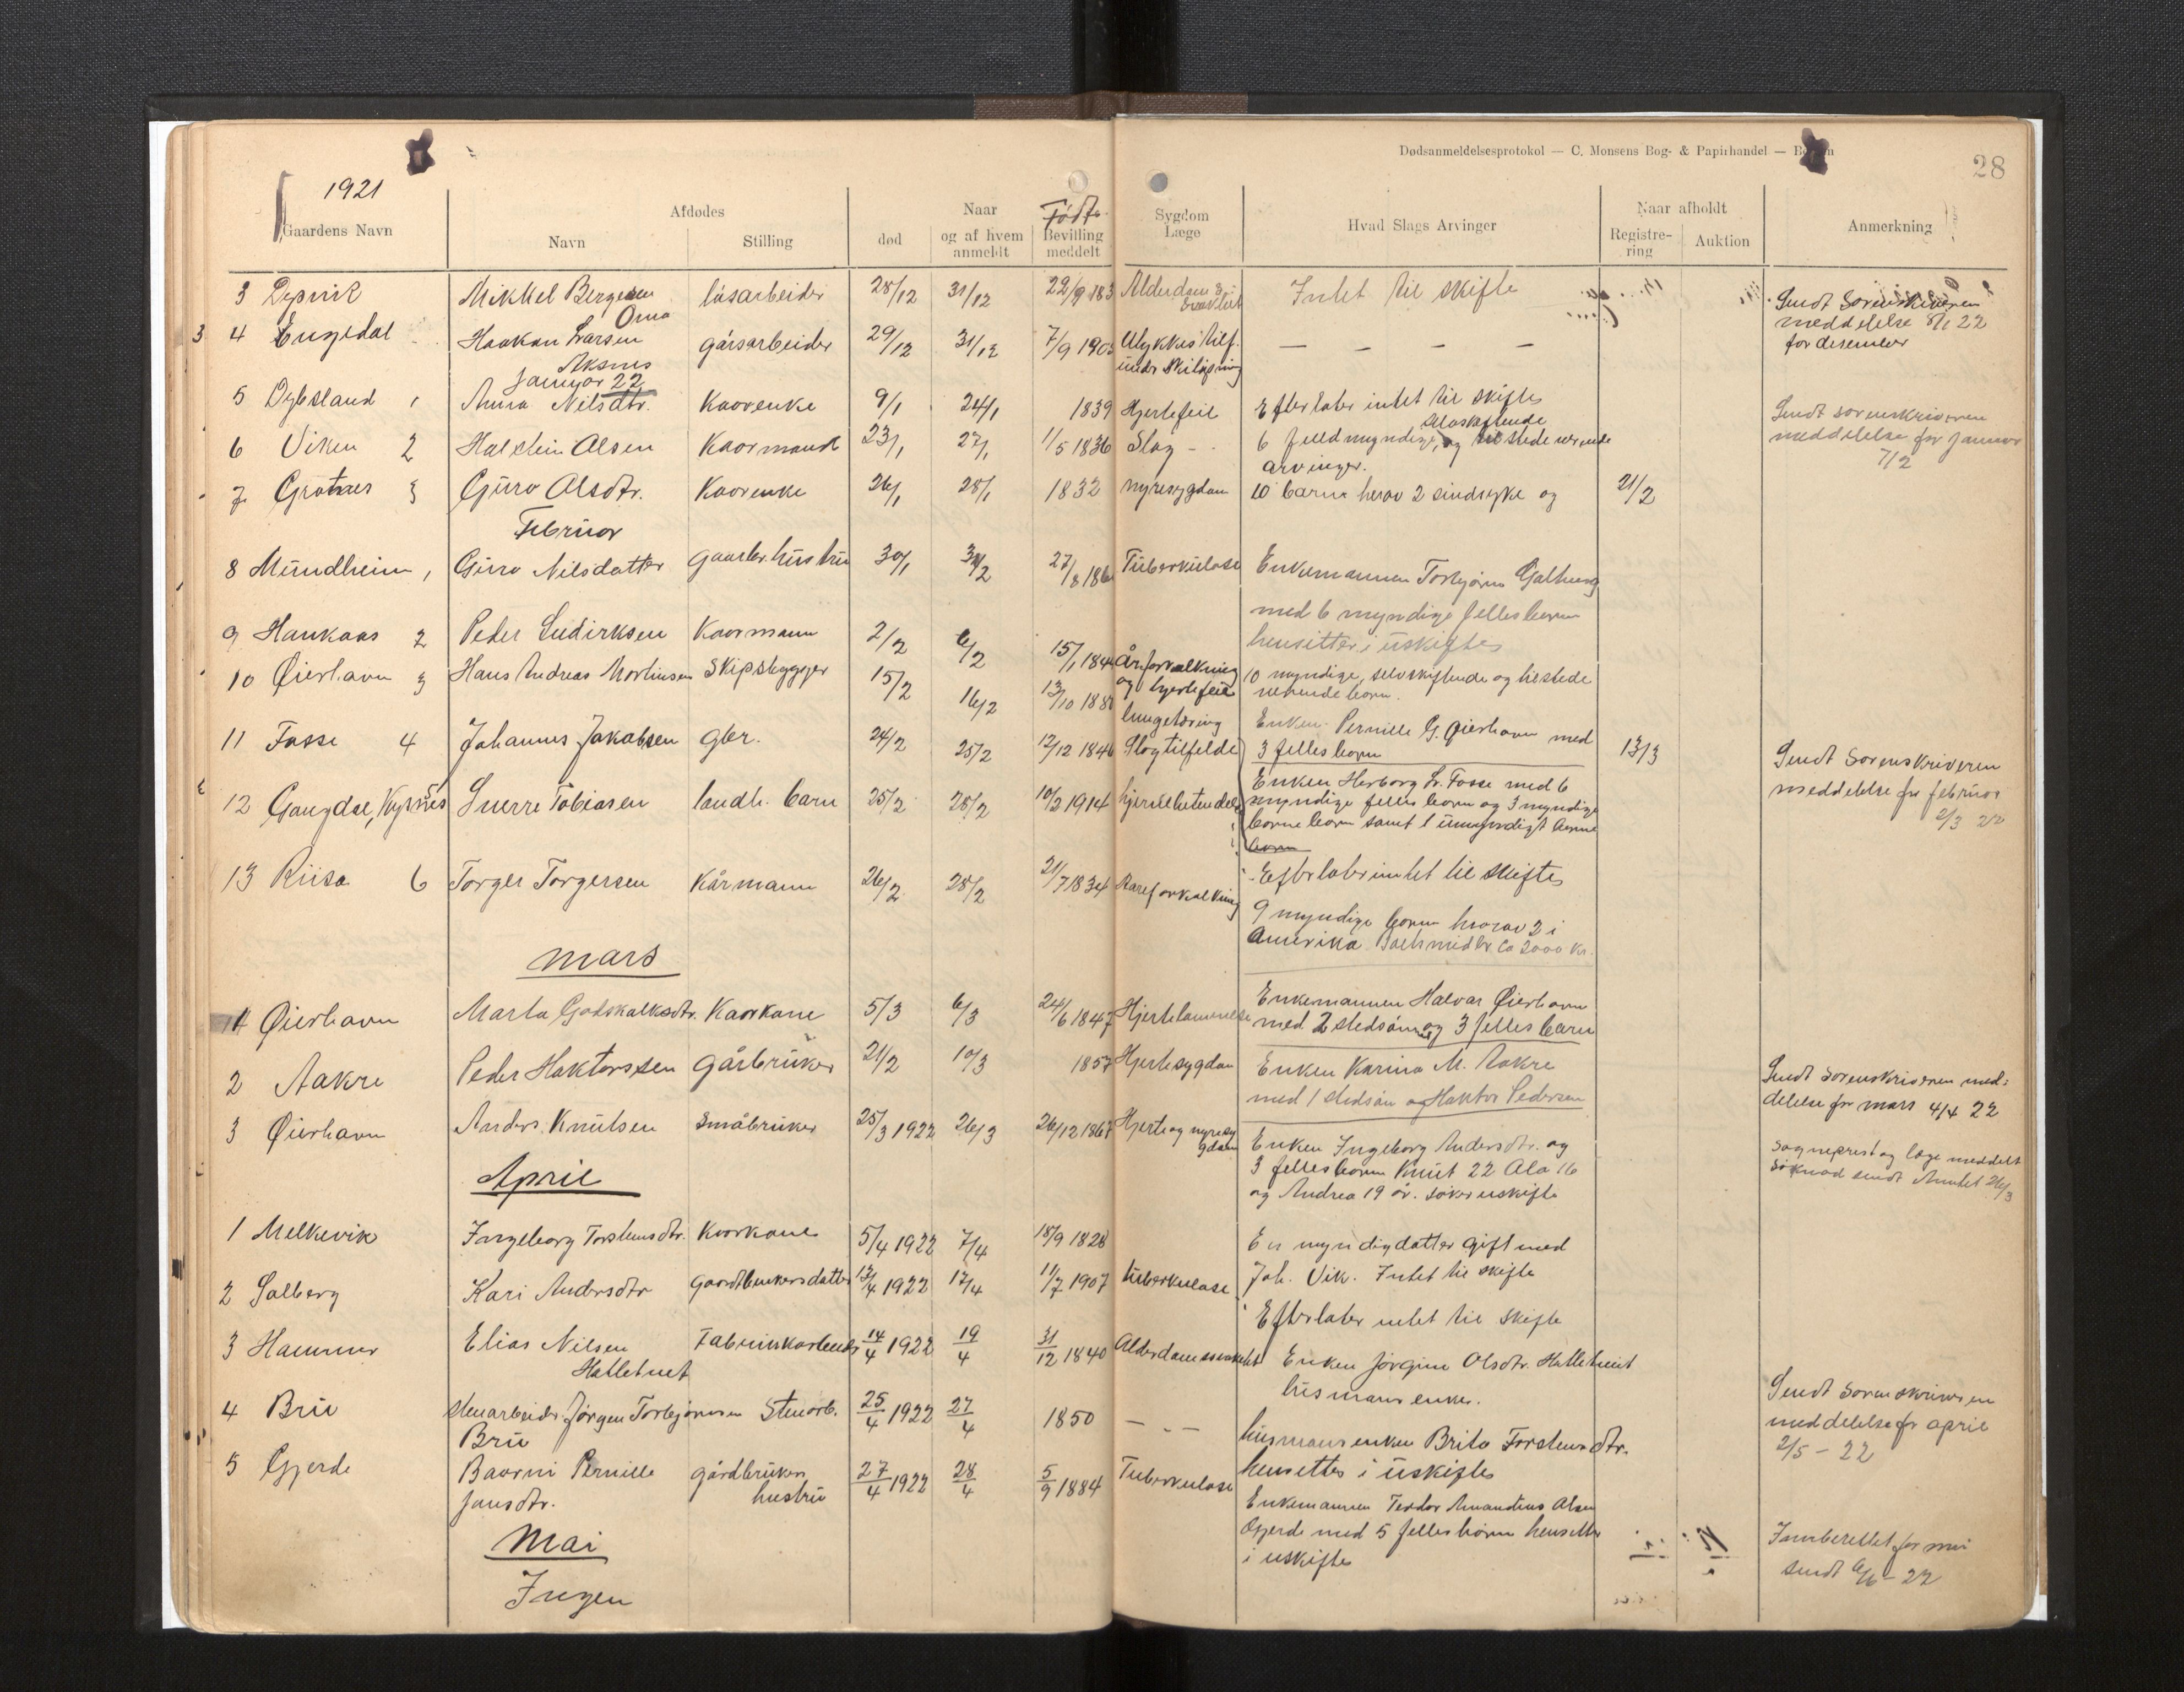 Dødsanmeldelsesprotokol — C. Monsens Bog- & Papirhandel —
28
1921
Gaardens Navn
Afdødes
Navn
Stilling
Naar
død
og af hvem anmeldt
Født
Bevilling meddelt
Sygdom Læge
Hvad Slags Arvinger
Naar afholdt
Registrering
Auktion
Anmerkning
3 Mikkel Bergesen løsarbeider 28/12 31/12 22/9 Intet til skifte Sendt Sorenskriveren
Oma meddelelse 22
3 4 Engedal Haakon Larsen gårsarbeider 29/12 31/12 7/9 1903 Ulykkestilf. — — — — for desember
Aksnes under
Januar 22
5 Dybsland 1 Anna Nilsdtr. Kaarenke 9/1 24/1 1839 Hjertefeil Efterlater intet til skifte Sendt sorenskriveren
selvskiftende
6 Viken 2 Halstein Olsen Kaarmand 23/1 27/1 11/5 1836 Slag 6 fuldmyndige, og tilstedeværende meddelelse for januar
arvinger. 7/2
7 3 Guro Olsdtr. Kaarenke 26/1 28/1 1832 nyresygdom 10 barn herav 2 sindsyke og 21/2
Februar
8 Mundheim 1 Guro Nilsdatter gaardbr. hustru 30/1 27/8 Tuberkulose Enkemannen Torbjørn
med 6 myndige fellesbarn
hensitter i uskifte
9 Haukaas 2 Peder Kaarmann 2/2 6/2 15/1 Åreforkalkning og hjertefeil 10 myndige, selvskiftende og tilstede
værende barn.
10 Øierhavn 3 Hans Andreas Mortinsen Skipsbygger 15/2 16/2 13/10 lungetæring Enken Pernille G. Øierhavn med
3 felles barn
11 Fosse 4 Johannes Jakobsen gbr. 24/2 25/2 12/12 1846 Slagtilfelde Enken Herborg L. Fosse med 6 13/3 Sendt Sorenskriveren
myndige felles barn og 3 myndige meddelelse for februar
barnebarn samt 1 umyndigt barne 2/3 22
barn
12 Gangdal, Sverre Tobiasen landh. barn 25/2 28/2 10/3 1914 Efterlater intet til skifte
13 Riisa 6 Torger Torgersen Kårmann 26/2 28/2 21/7 1834 Aareforkalkning 9 myndige barn hvorav 2 i
Amerika Boets midler ca 2000 kr
Mars
1 Øierhavn Marta Godskalksdtr. Kaarkone 5/3 6/3 24/6 1847 Hjertelammelse Enkemannen Halvor Øierhavn
med 2 stedsønner og 3 felles barn
2 Aakre Peder Haktorssen gårbruker 21/2 10/3 1857 Hjertesygdom Enken Karina M. Aakre Sendt Sorenskriveren med-
med 1 stedsøn og Haktor Pedersen delelse for mars 4/4 22
3 Øierhavn Anders Knutsen Småbruker 25/3 1922 26/3 26/12 1867 Hjerte og nyresygdom Enken Ingeborg Andersdtr. og sogneprest og læge meddelt
3 felles barn Knut 22 Ola 16 søknad sendt Amtet 26/3
og Andrea 19 år. søker uskifte
April
1 Melkevik Ingeborg Torsteinsdtr. Kaarkone 5/4 1922 7/4 18/9 1828 En myndig datter gift med
Joh. Vik. Intet til skifte
2 Solberg Kari Andersdtr gaardbrukersdatter 12/4 1922 17/4 11/7 1907 tuberkulose Efterlater intet til skifte
3 Hammer Elias Nilsen Fabrikkarbeider 14/4 1922 19/4 31/12 1840 Enken Jørgine Olsdtr. Halletveit
Halletveit husmansenke.
4 Bru stenarbeider Jørgen Torbjørnsen Stenarb. 25/4 1922 27/4 1850 — - — husmansenken Brita Torsteinsdtr. Sendt Sorenskriveren
Bru hensettes i uskifte meddelelse for april
2/5 - 22
5 Gjerde Baarni Pernille gårdbrukers 27/4 1922 28/4 5/9 1884 Tuberkulose Enkemannen Teodor Amandus Olsen
Jonsdtr. hustru Gjerde med 5 felles barn hensitter
i uskifte
Mai
Ingen
Innberettet for mai
sendt 6/6 - 22